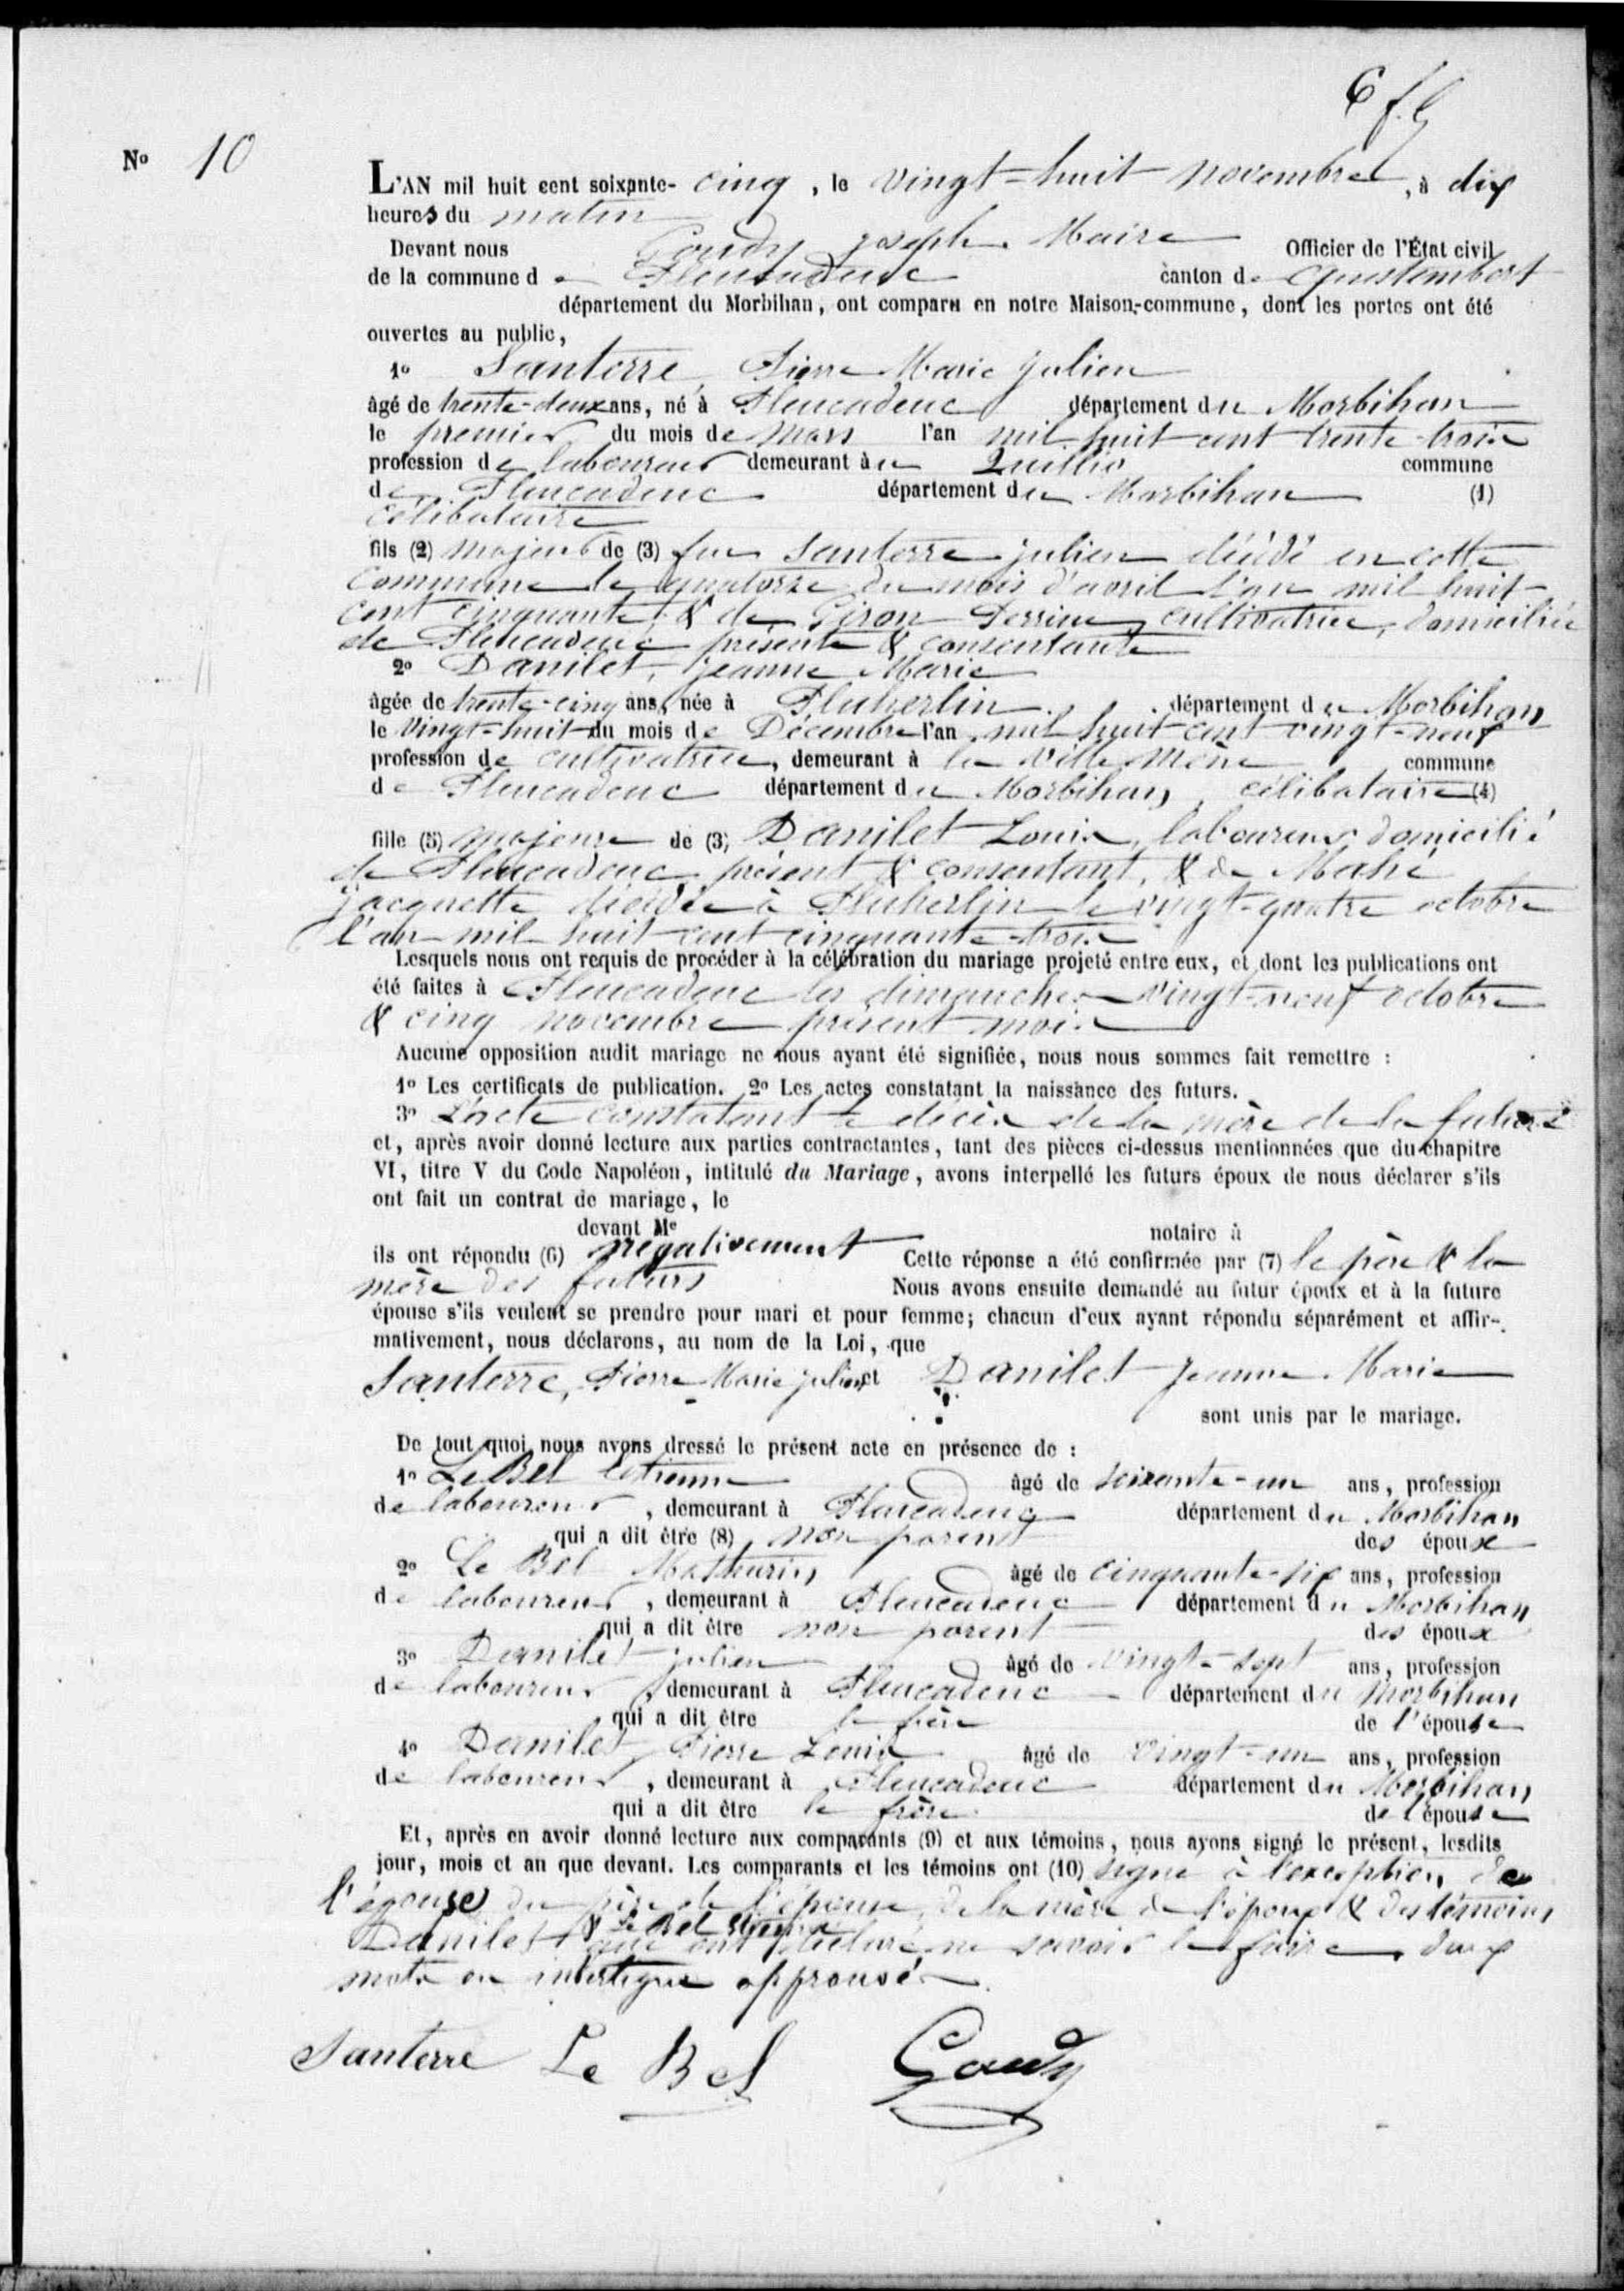 6 f.G
No 10
L'AN mil huit cent soixante- cinq, le vingt-huit novembre, à dix
heures du matin
Devant nous Goudy joseph Maire Officier de l'État civil
de la commune de Pleucadeuc canton de Questembert
département du Morbihan, ont comparu en notre Maison-commune, dont les portes ont été
ouvertes au public,
1o Santerre, Pierre Marie julien
âgé de trente-deux ans, né à Pleucadeuc département du Morbihan
le premier du mois de Mars l'an mil huit cent trente trois
profession de laboureur demeurant au Quillio commune
de Pleucadeuc département du Morbihan (1)
célibataire
fils (2) majeur de (3) feu Santerre julien décédé en cette
commune le quatorze du mois d'avril l'an mil huit
cent cinquante & de Piron Perrine, cultivatrice, domiciliée
de Pleucadeuc présente & consentante
2o Danilet, jeanne Marie
âgée de trente-cinq ans, née à Pluherlin département du Morbihan
le vingt-huit du mois de Décembre l'an mil huit cent vingt-neuf
profession de cultivatrice, demeurant à la Ville Mène commune
de Pleucadeuc département du Morbihan, célibataire (4)
fille (5) majeure de (3) Danilet Louis, laboureur domicilié
de Pleucadeuc présent & consentant, & de Mahé
jacquette décédée à Pluherlin le vingt-quatre octobre
l'an mil huit cent cinquante-trois
Lesquels nous ont requis de procéder à la célébration du mariage projeté entre eux, et dont les publications ont
été faites à Pleucadeuc les dimanches vingt-neuf octobre
& cinq novembre présent mois
Aucune opposition audit mariage ne nous ayant été signifiée, nous nous sommes fait remettre :
1o Les certificats de publication. 2o Les actes constatant la naissance des futurs.
3o L'acte constatant le décès de la mère de la future
et, après avoir donné lecture aux parties contractantes, tant des pièces ci-dessus mentionnées que du chapitre
VI, titre V du Code Napoléon, intitulé du Mariage, avons interpellé les futurs époux de nous déclarer s'ils
ont fait un contrat de mariage, le
devant Me notaire à
ils ont répondu (6) négativement Cette réponse a été confirmée par (7) le père & la
mère des futurs Nous avons ensuite demandé au futur époux et à la future
épouse s'ils veulent se prendre pour mari et pour femme; chacun d'eux ayant répondu séparément et affir-
mativement, nous déclarons, au nom de la Loi, que
Santerre, Pierre Marie julien et Danilet jeanne Marie
sont unis par le mariage.
De tout quoi nous avons dressé le présent acte en présence de :
1o Le Bel Etienne âgé de soixante-un ans, profession
de laboureur, demeurant à Pleucadeuc département du Morbihan
qui a dit être (8) non parent des époux
2o Le Bel Mathurin âgé de cinquante-six ans, profession
de laboureur, demeurant à Pleucadeuc département du Morbihan
qui a dit être non parent des époux
3o Danilet julien âgé de vingt-sept ans, profession
de laboureur, demeurant à Pleucadeuc département du Morbihan
qui a dit être le frère de l'épouse
4o Danilet Pierre Louis âgé de vingt-un ans, profession
de laboureur, demeurant à Pleucadeuc département du Morbihan
qui a dit être le frère de l'épouse
Et, après en avoir donné lecture aux comparants (9) et aux témoins, nous avons signé le présent, lesdits
jour, mois et an que devant. Les comparants et les témoins ont (10) signé à l'exception de
l'épouse du père de l'épouse, de la mère de l'époux & des témoins
& Le Bel Etienne
Danilet qui ont déclaré ne savoir le faire, deux
mots en interligne approuvés
Santerre Le Bel Goudy